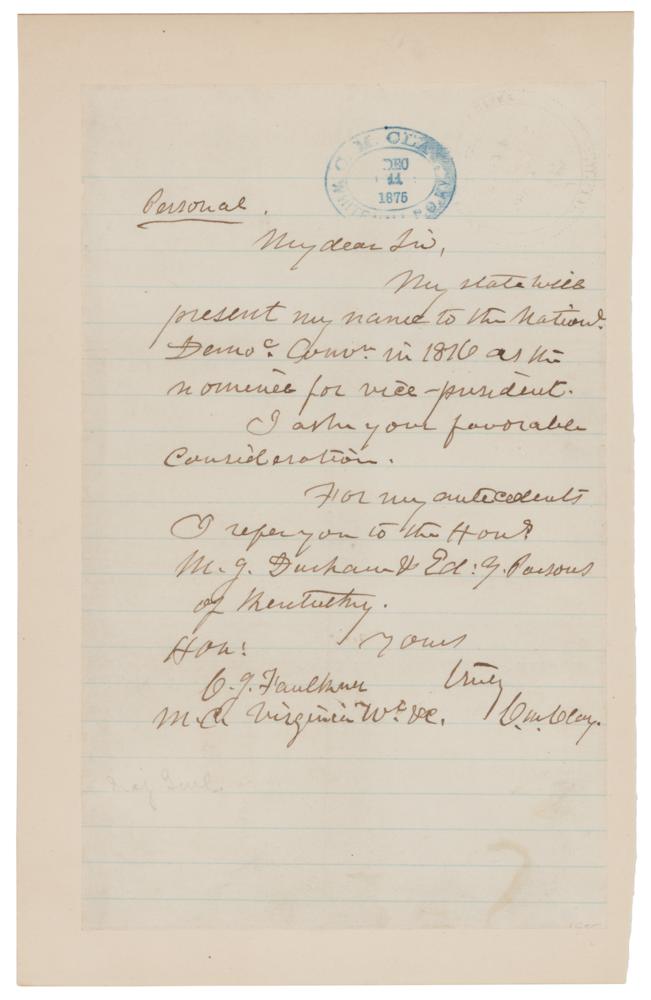 C. M. CLAY
DEC
11
1875
WHITE HALL P.O. KY.
Personal.
My dear Sir,
My state will
present my name to the Nationl.
Democ. Convn. in 1876 as the
nominee for vice-president.
I ask your favorable
Consideration.
For my antecedents
I refer you to the Honl.
M. J. Durham & Ed: Y. Parsons
of Kentucky.
Hon: yours
C. J. Faulkner truly
M.C. Virginia Wt. &c. C. M. Clay.